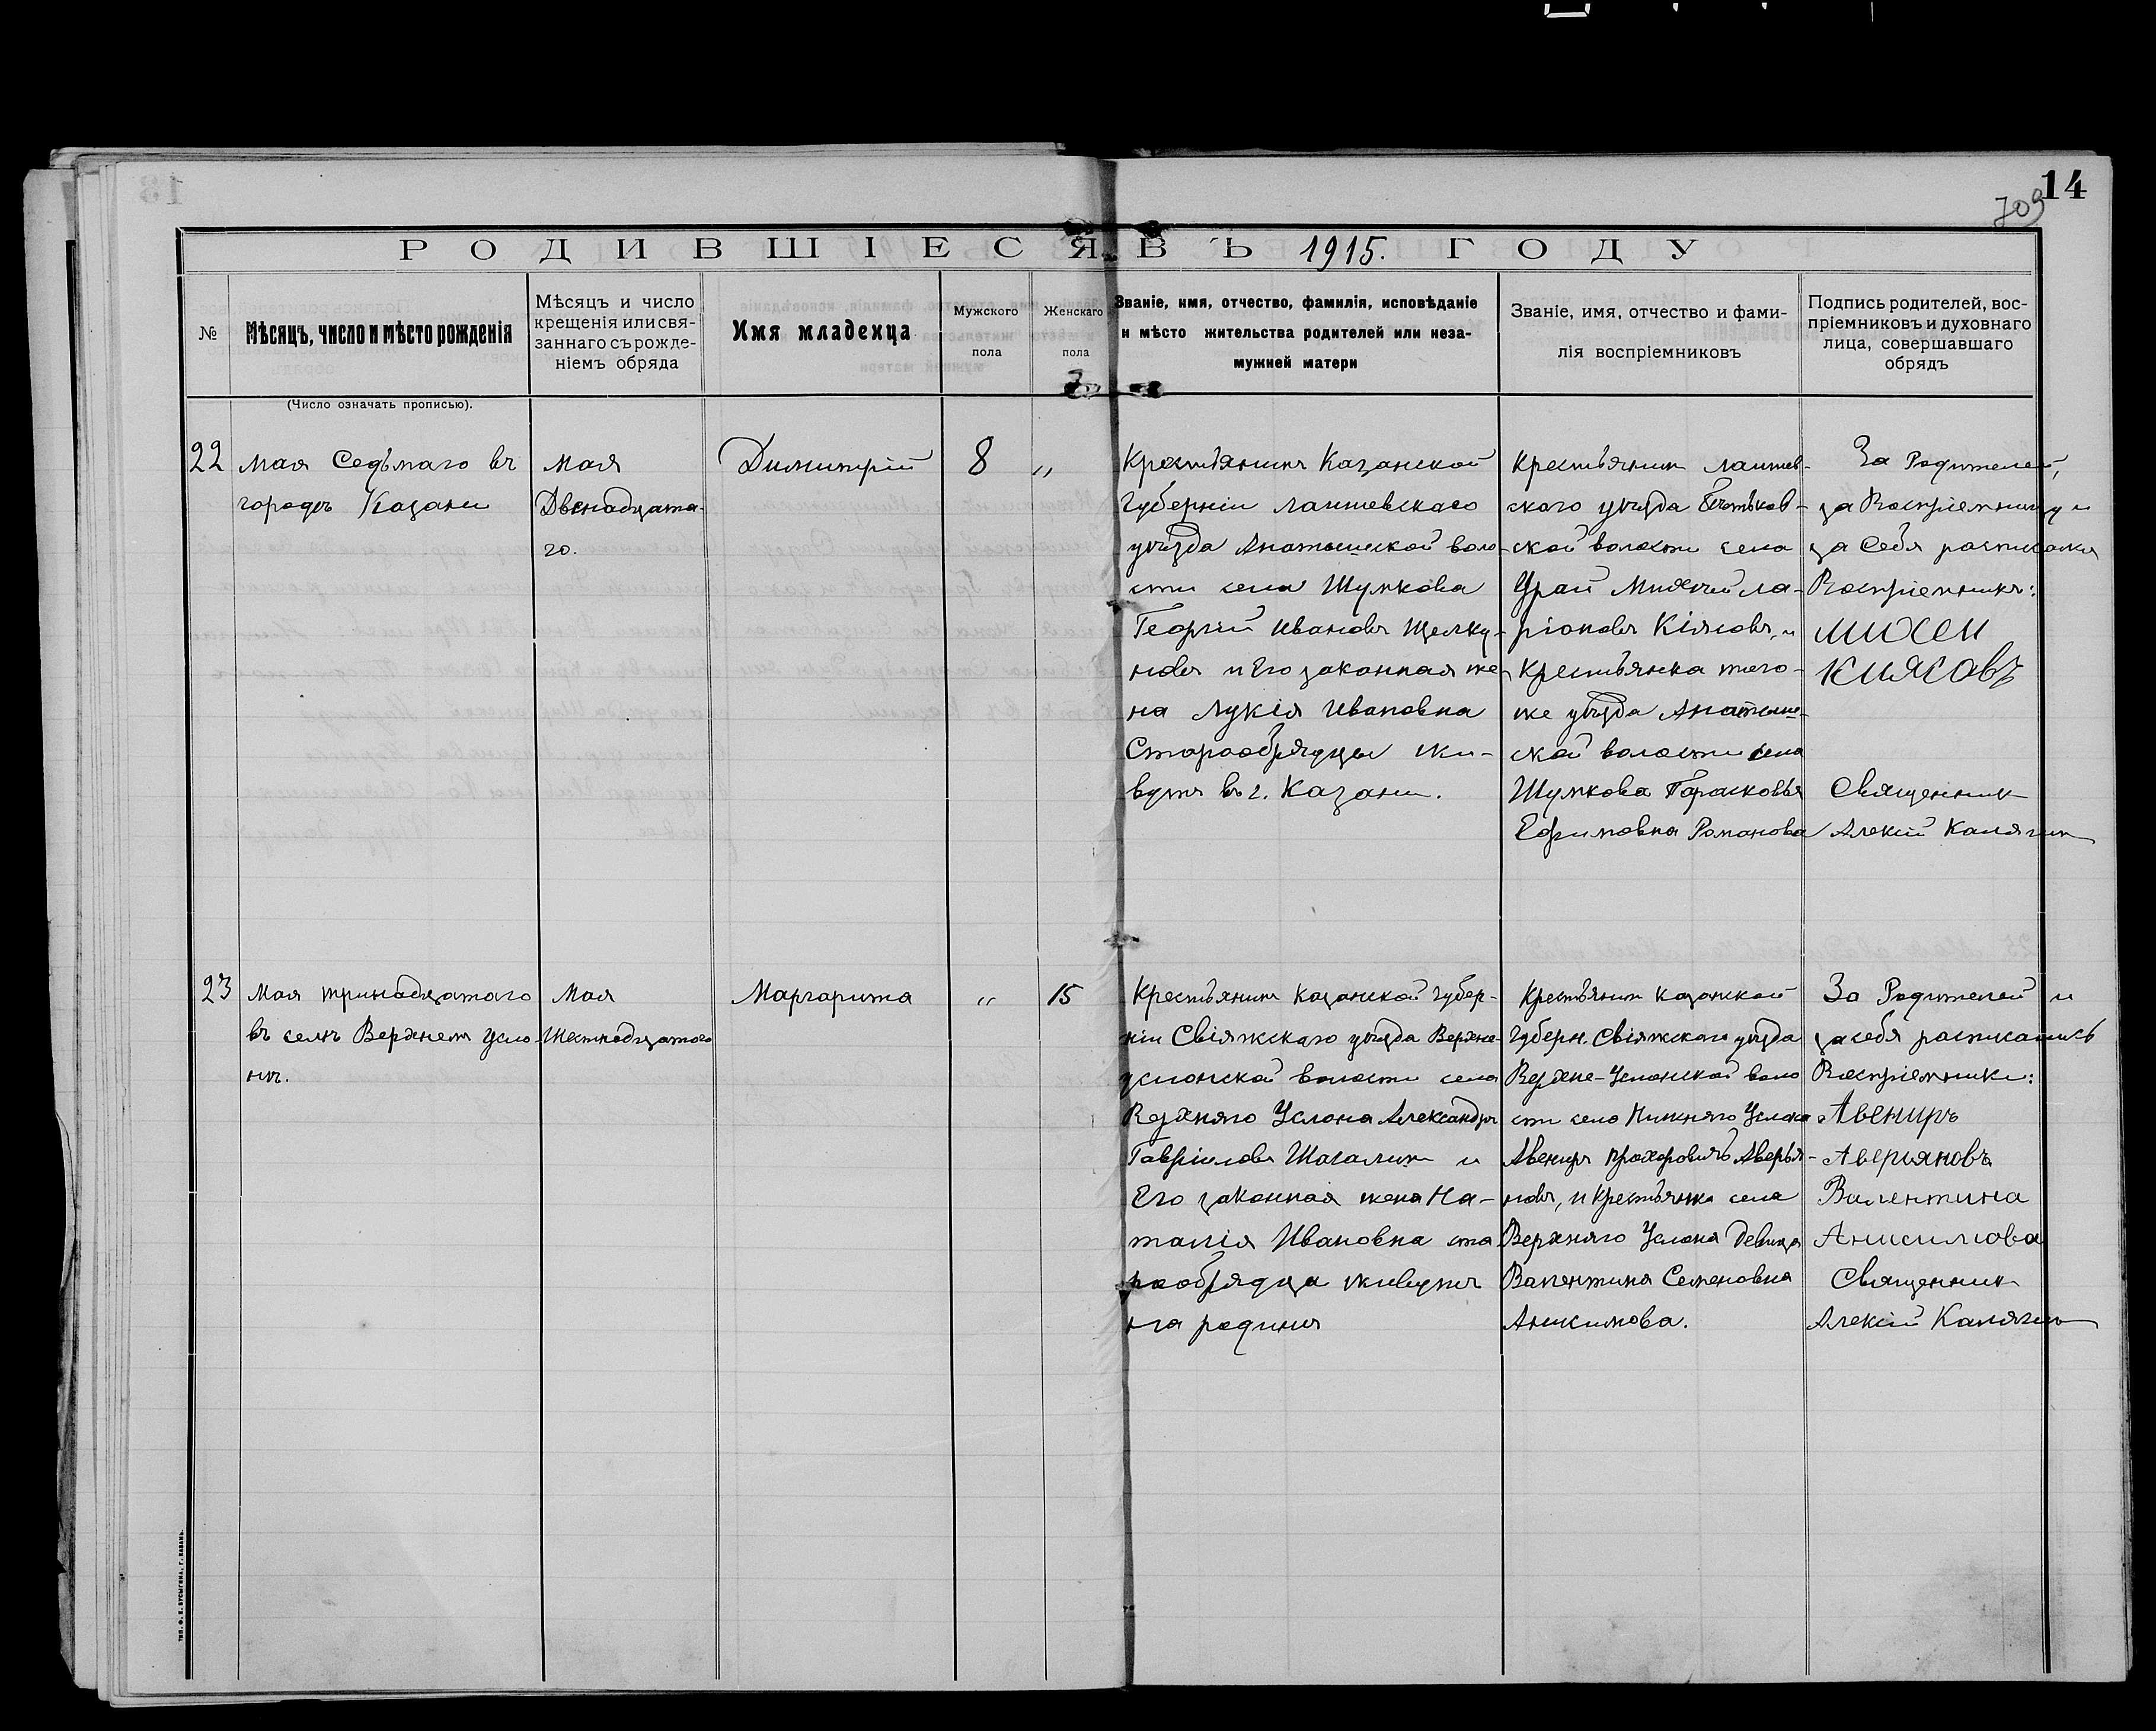 14
709
РОДИВШІЕСЯ ВЪ 1915. ГОДУ
№
Мѣсяцъ, число и мѣсто рожденія
(Число означать прописью).
Мѣсяцъ и число
крещенія или свя-
заннаго съ рожде-
ніемъ обряда
Имя младенца
Мужского
пола
Женскаго
пола
Званіе, имя, отчество, фамилія, исповѣданіе
и мѣсто жительства родителей или неза-
мужней матери
Званіе, имя, отчество и фами-
лія воспріемниковъ
Подпись родителей, вос-
пріемниковъ и духовнаго
лица, совершавшаго
обрядъ
22
мая Седьмаго въ
городѣ Казани
мая
Двенадцата-
го.
Димитрій
8
"
Крестьянинъ Казанской
Губерніи лаишевскаго
уѣзда Анатышской воло-
сти села Шумкова
Георгій Ивановъ Щелку-
новъ и Его законная же-
на Лукія Ивановна
Старообрядцы жи-
вутъ въ г. Казани.
Крестьянин лаишев-
ского уѣзда
ской волости села
Урай Михей ла-
ріоновъ Кіясовъ, и
Крестьянка того-
же уѣзда Анатыш-
ской волости села
Шумкова Парасковья
Ефимовна Романова
За Родителей,
за Воспріемницу и
за Себя расписался
Воспріемникъ:
михеи
киясовъ
Священник
Алексій Калягин
23
Мая тринадцатаго
въ селѣ Верхнем Усло-
нѣ.
Мая
Шестнадцатого
Маргарита
"
15
Крестьянинъ Казанской Губер-
ніи Свіяжскаго уѣзда Верхне-
услонской волости села
Верхняго Услона Александръ
Гавріиловъ Шагалин и
Его законная жена На-
талія Ивановна ста
рообрядца живутъ
на родинѣ
Крестьянин Казанской
Губерн. Свіяжскаго уѣзда
Верхне-Услонской воло
сти село Нижняго Услона
Авениръ Прохоровичъ Аверья-
новъ, и Крестьянка села
Верхняго Услона Девица
Валентина Семеновна
Анисимова.
За Родителей и
за себя расписались
Воспріемники:
Авениръ
Аверьяновъ
Валентина
Анисимова
Священник
Алексій Калягин
Тип. Ф. Е. Бусыгина, г. Казань.